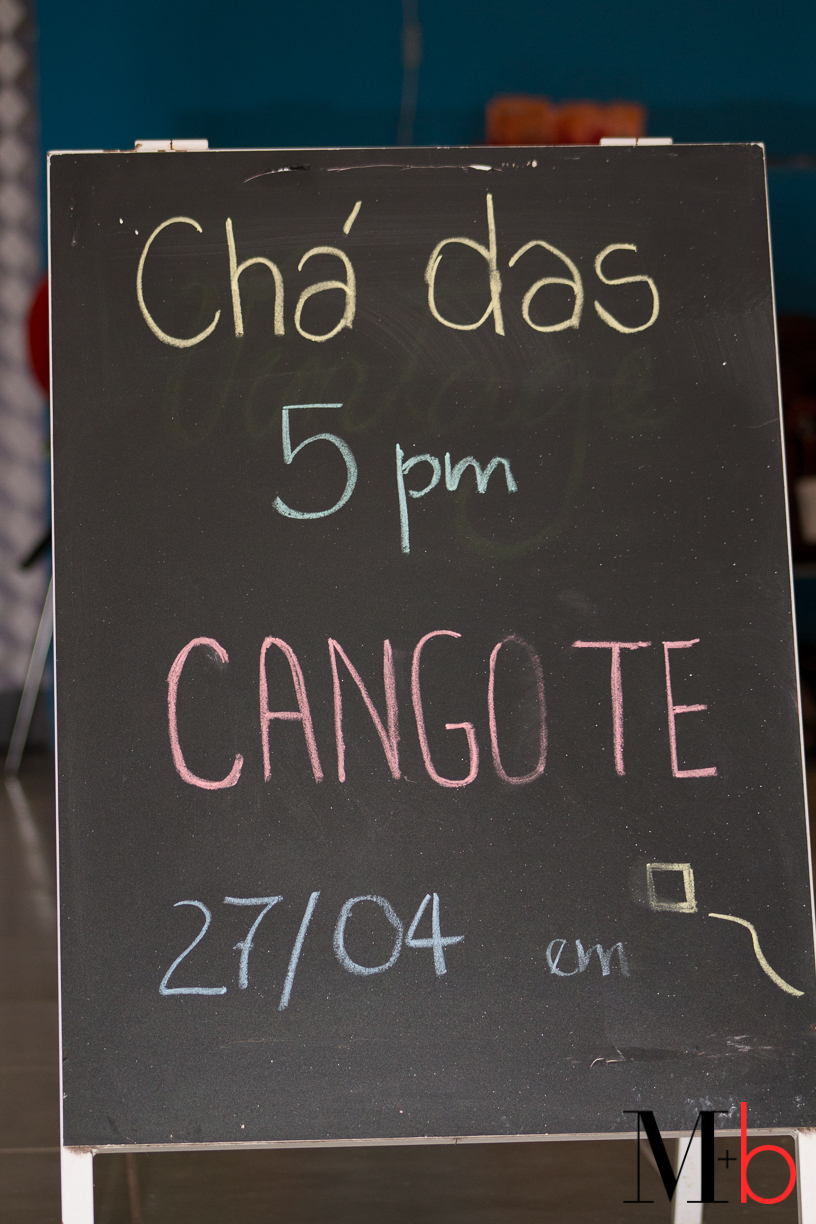 Chá das
5 pm
CANGOTE
27/04 em
M+b